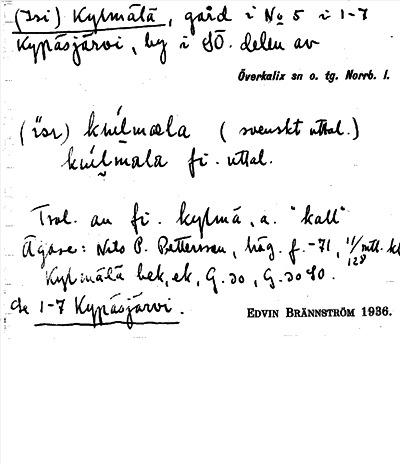 (Isi) Kylmälä, gård i No 5 i 1-7
Kypäsjärvi, by i SÖ. delen av
Överkalix sn o. tg. Norrb. l.
(ịsị) kuilmala (svenskt uttal.)
kuilmala fi. uttal.
Trol. av fi. kylmä, a. "kall"
Ägare: Nils P. Pettersson, häg. f. -71, 11/128 mtl.
Kylmälä bek, ek, G.do, G.do SO.
de 1-7 Kypäsjärvi.
EDVIN BRÄNNSTRÖM 1936.